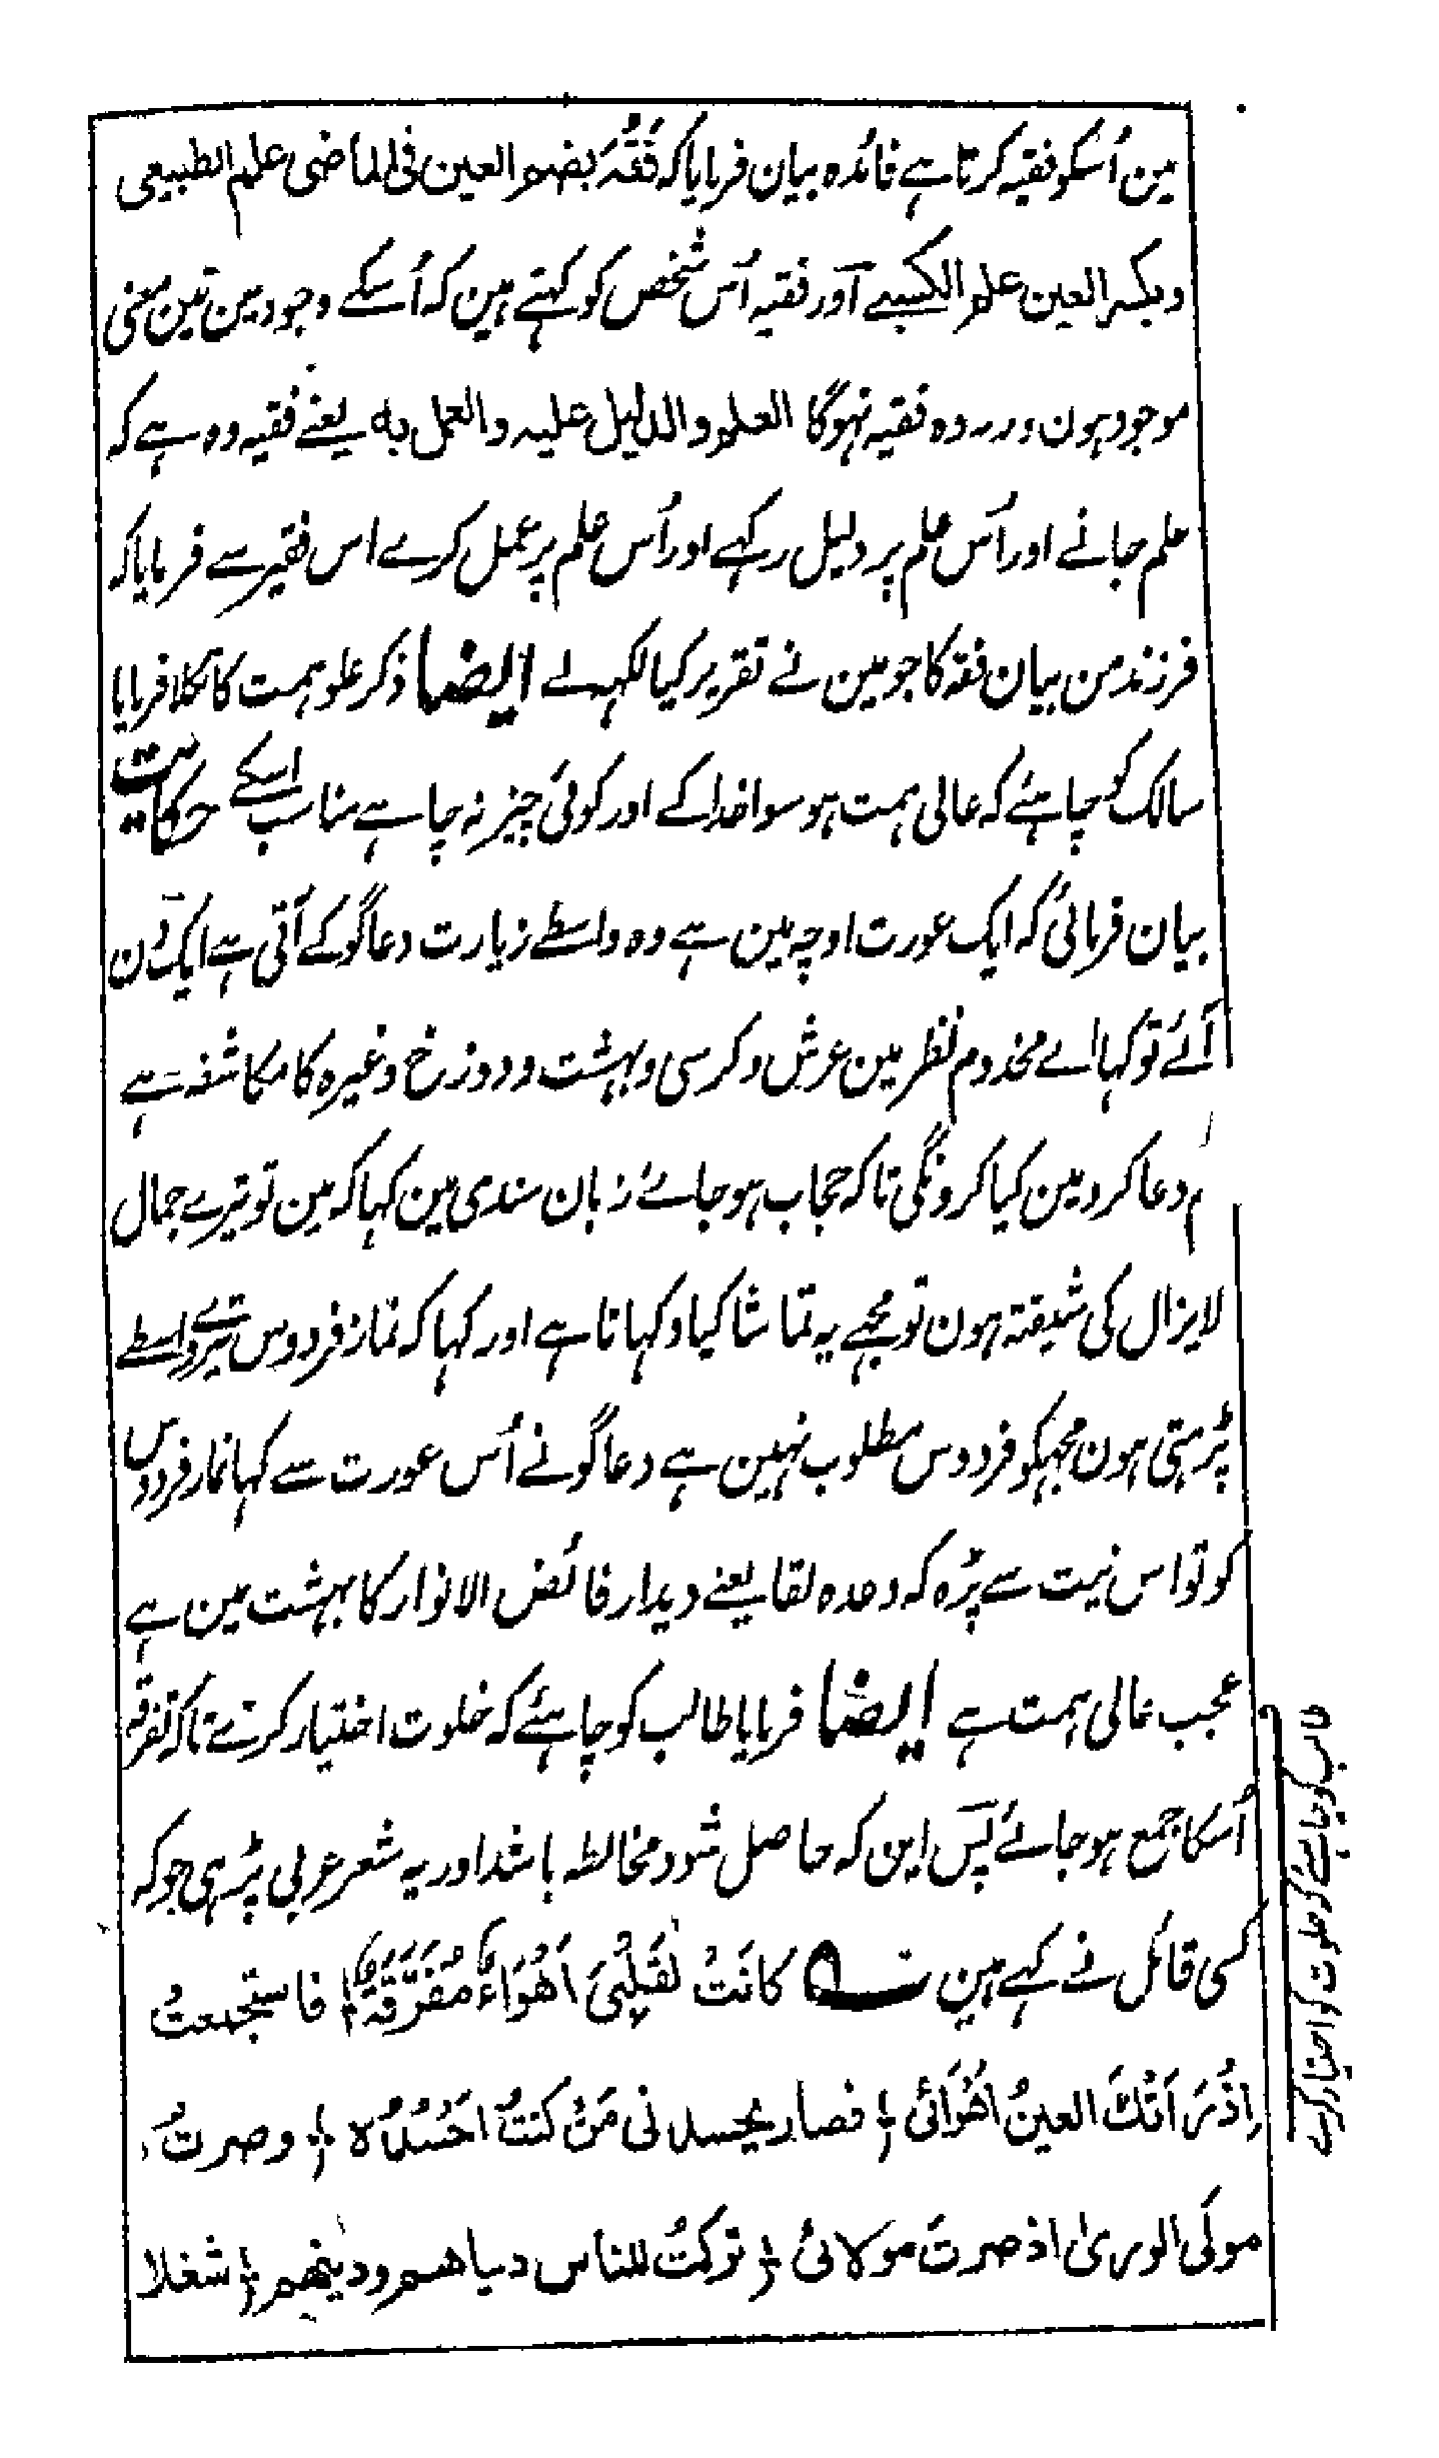 مین اُسکو فقیہ کرتا ہے فائدہ بیان فرمایا کہ فَقُہَ بضم العین فی الماضی علم الطبیعی
وبکسر العین علم الکسبے آور فقیہ اُس شخص کو کہتے ہین کہ اُسکے وجود مین تین معنی
موجود ہون ورنہ وہ فقیہ نہوگا العلم والدلیل علیہ والعمل بہ یعنے فقیہ وہ ہے کہ
علم جانے اور اُس علم پر دلیل رکہے اور اُس علم پر عمل کرے اس فقیر سے فرمایا کہ
فرزند من بیان فقہ کا جو مین نے تقریر کیا لکہہ لے ایضا ذکر علو ہمت کا نکلا فرمایا
سالک کو چاہئے کہ عالی ہمت ہو سوا خدا کے اور کوئی چیز نہ چاہے مناسب اسکے حکایت
بیان فرمائی کہ ایک عورت اوچہ مین ہے وہ واسطے زیارت دعاگو کے آتی ہے ایک دن
آئے تو کہا اے مخدوم نظر مین عرش وکرسی وبہشت ودوزخ وغیرہ کا مکاشفہ ہے
تم دعا کرو مین کیا کرونگی تاکہ حجاب ہوجائے زبان سندی مین کہا کہ مین تو تیرے جمال
لایزال کی شیفتہ ہون تو مجہے یہ تماشا کیا دکہاتا ہے اور کہا کہ نماز فردوس تیرے واسطے
پڑہتی ہون مجہکو فردوس مطلوب نہین ہے دعاگو نے اُس عورت سے کہا نماز فردوس
کو تو اس نیت سے پڑہ کہ وعدہ لقا یعنے دیدار فائض الانوار کا بہشت مین ہے
عجب عالی ہمت ہے ایضا فرمایا طالب کو چاہئے کہ خلوت اختیار کرے تاکہ تفرقہ
اُسکا جمع ہوجائے پس این کہ حاصل شود مخالطہ باشد اور یہ شعر عربی پڑہی جو کہ
کسی قائل نے کہے ہین کانَتْ لِقَلْبِیَ اَهْوَاءٌ مُفَرَّقَةٌ فاستجمعتْ
اِذْرَ اَتْكَ العینُ اَهْوَائی فصار یحسدنی مَنْ کنتُ اَحْسُدُہ وصرتُ
مولَی الوریٰ اذ صرتَ مولائیُ ترکتُ للناس دنیاهم ودینهم شغلا
طالب کو چاہئے کہ خلوت کو اختیار کرے